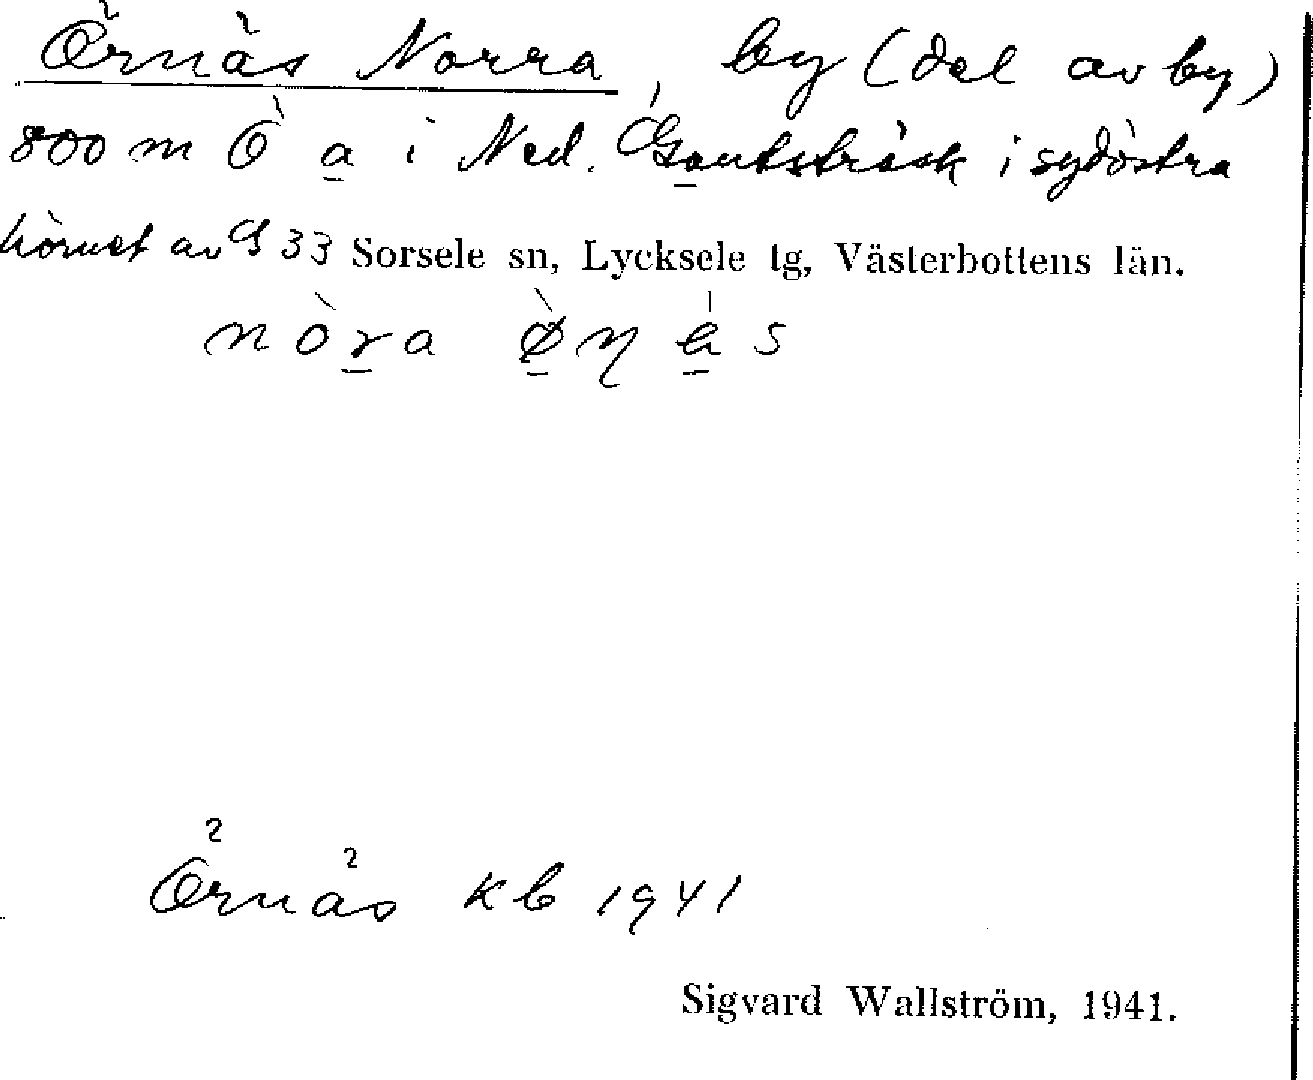 Örnäs Norra, by (del av by)
800 m Ö a i Ned. Gautsträsk i sydöstra
hörnet av G 33 Sorsele sn, Lycksele tg, Västerbottens län.
Örnäs kb 1941
Sigvard Wallström, 1941.